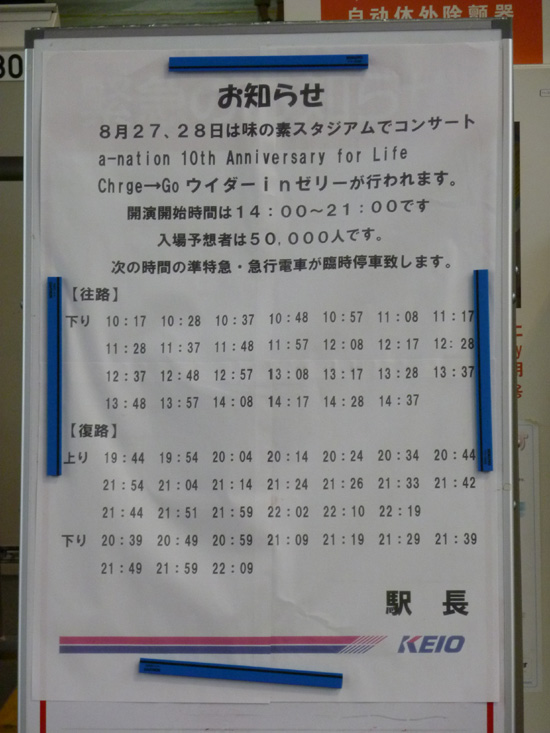 自动体外除顫器
30
お知らせ
8月27、28日は味の素スタジアムでコンサート
a-nation 10th Anniversary for Life
Chrge→Go ウイダーｉｎゼリーが行われます。
開演開始時間は14：00～21：00です
入場予想者は50,000人です。
次の時間の準特急・急行電車が臨時停車致します。
【往路】
下り 10:17 10:28 10:37 10:48 10:57 11:08 11:17
11:28 11:37 11:48 11:57 12:08 12:17 12:28
12:37 12:48 12:57 13:08 13:17 13:28 13:37
13:48 13:57 14:08 14:17 14:28 14:37
【復路】
上り 19:44 19:54 20:04 20:14 20:24 20:34 20:44
21:54 21:04 21:14 21:24 21:26 21:33 21:42
21:44 21:51 21:59 22:02 22:10 22:19
下り 20:39 20:49 20:59 21:09 21:19 21:29 21:39
21:49 21:59 22:09
駅　長
KEIO